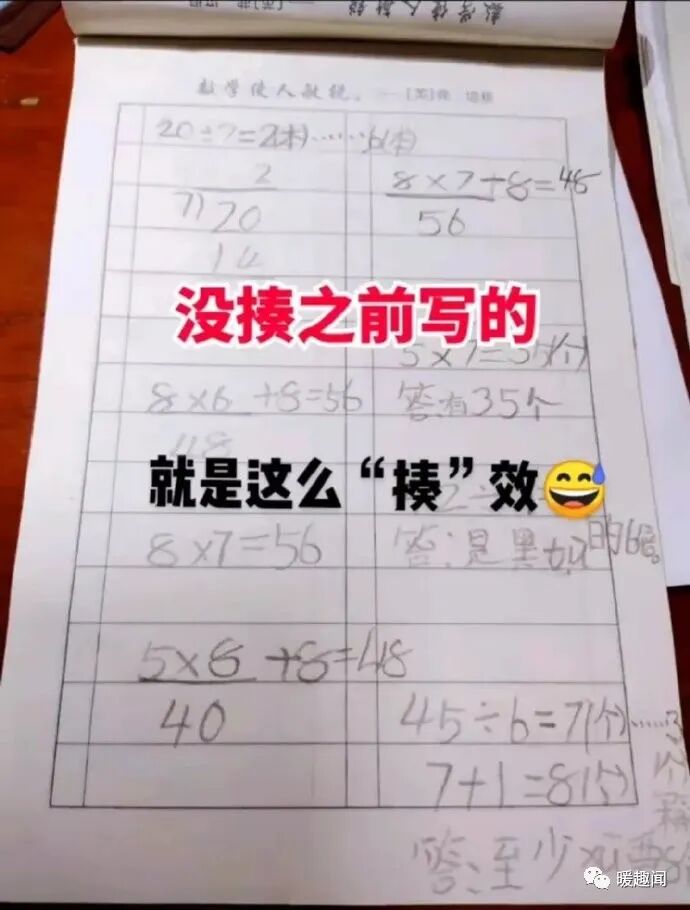 数学使人敏锐。
20÷7=2(本)……6(本)
2
7)20
14
8×7+8=48
56
没揍之前写的
5×7=35(个)
8×6+8=56
答:有35个
48
就是这么“揍”效😅
8×7=56
答:是黑如的6倍。
5×8+8=48
40
45÷6=7(个)……3
7+1=8(个)
答:至少
暖趣闻